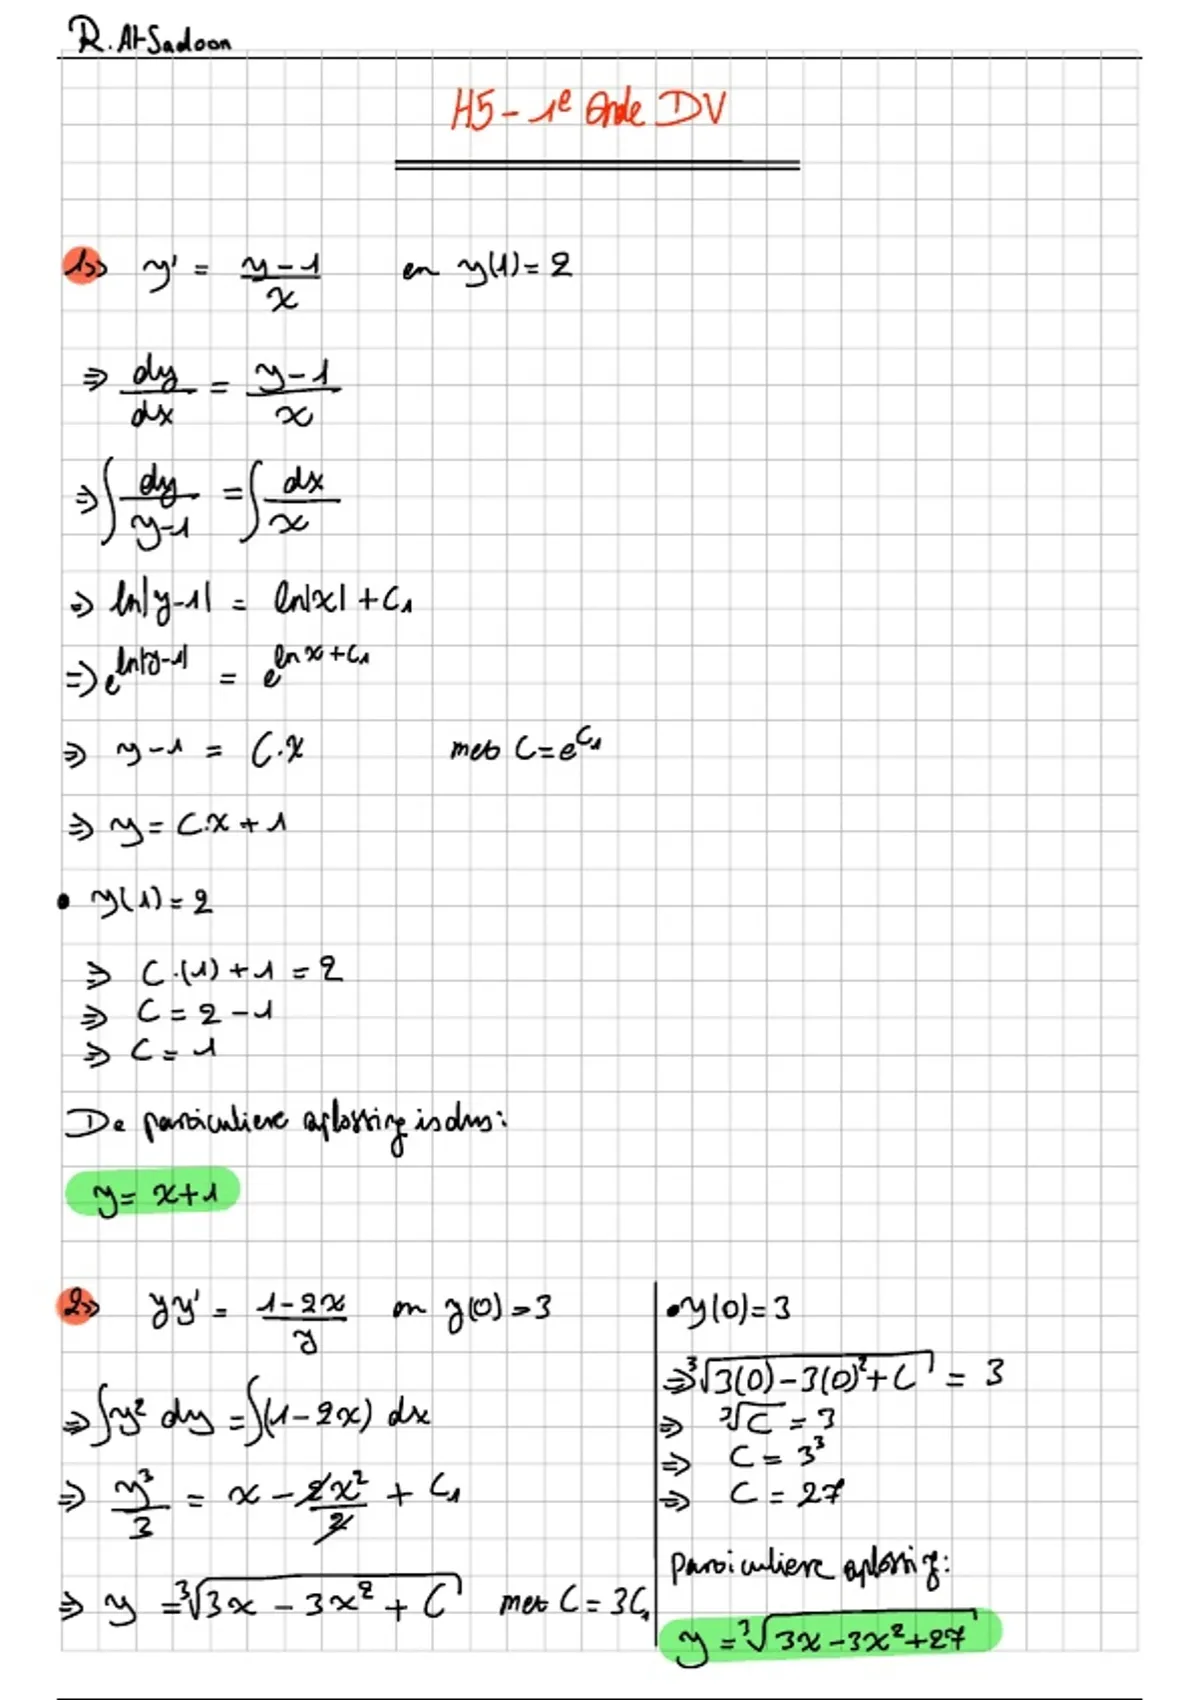 R. Al-Sadoon
H5 - 1e Orde DV
1>> y' = (y-1)/x en y(1) = 2
⇒ dy/dx = (y-1)/x
⇒ ∫ dy/(y-1) = ∫ dx/x
⇒ ln|y-1| = ln|x| + C₁
⇒ e^(ln|y-1|) = e^(ln x + C₁)
⇒ y-1 = C.x met C = e^(C₁)
⇒ y = C.x + 1
• y(1) = 2
⇒ C.(1) + 1 = 2
⇒ C = 2 - 1
⇒ C = 1
De particuliere oplossing is dus:
y = x+1
2>> yy' = (1-2x)/y en y(0) = 3
⇒ ∫y² dy = ∫(1-2x) dx
⇒ y³/3 = x - 2x²/2 + C₁
⇒ y = ³√(3x - 3x² + C) met C = 3C₁
• y(0) = 3
⇒ ³√(3(0) - 3(0)² + C) = 3
⇒ ³√C = 3
⇒ C = 3³
⇒ C = 27
particuliere oplossing:
y = ³√(3x - 3x² + 27)